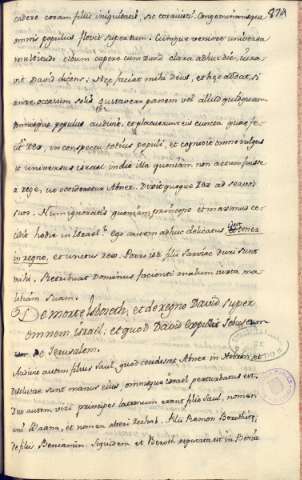 274
cadere coram filiis iniquitatis, sic corruisti. Congeminansque
omnis populus flevit super eum. Cumque venisset universa
multitudo cibum capere cum David clara adhuc die, iura-
vit David dicens: Hec faciat mihi deus, et hec addat, si
ante occasum solis gustavero panem vel aliud quidquam
omnisque populus audivit, et placuerunt eis cuncta que fe-
cit rex, in conspectu totius populi, et cognovit omne vulgus
et universus israel in die illa quoniam non actum fuisset
a rege, ut occideretur Abner. Dixit quoque rex ad servos
suos. Num ignoratis quoniam princeps et maximus ce-
cidit hodie in Israel? Ego autem adhuc delicatus
in regno, et unctus rex. Porro isti filii Sarviae duri sunt
mihi. Retribuat Dominus facienti malum iuxta ma-
litiam suam.
De morte Isboseth, et de regno David super
omnem israel, et quod David expulit Jebuseum
de Jerusalem.
Audivit autem filius Saul, quod cecidisset Abner in Hebron, et
dissolutae sunt manus eius, omnisque israel perturbatus est.
Duo autem viri principes latronum erant filio Saul, nomen
uni Baana, et nomen alteri Rechab, filii Remon Berothitae
de filiis Benjamin. Siquidem et Beroth reputata est in Benia